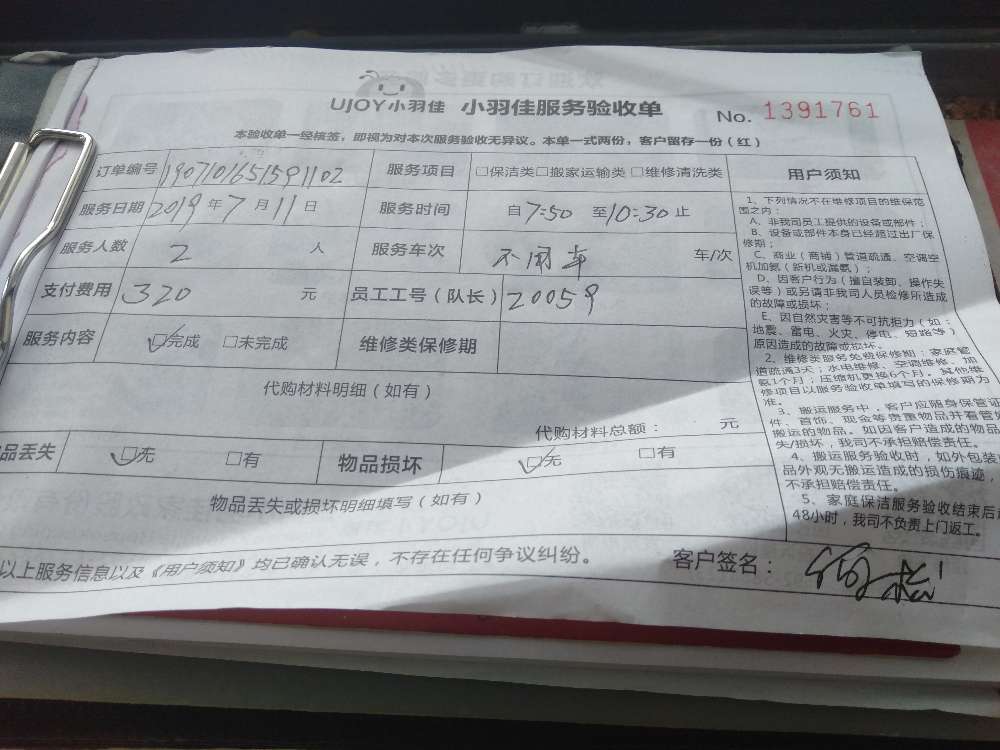 UJOY小羽佳 小羽佳服务验收单 No. 1391761
本验收单一经核签，即视为对本次服务验收无异议。本单一式两份，客户留存一份（红）
订单编号 1907101651591102 服务项目 □保洁类□搬家运输类□维修清洗类 用户须知
服务日期 2019 年 7 月 11 日 服务时间 自 7:50 至 10:30 止
服务人数 2 人 服务车次 不用车 车/次
支付费用 320 元 员工工号（队长） 20059
服务内容 ☑完成 □未完成 维修类保修期
代购材料明细（如有）
代购材料总额： 元
品丢失 ☑无 □有 物品损坏 ☑无 □有
物品丢失或损坏明细填写（如有）
以上服务信息以及《用户须知》均已确认无误，不存在任何争议纠纷。 客户签名：
1、下列情况不在维修项目的维保范
围之内：
A、非我司员工提供的设备或部件；
B、设备或部件本身已经超过出厂保
修期；
C、商业（商铺）管道疏通、空调空
机加氨（新机或漏氨）；
D、因客户行为（擅自装卸、操作失
误等）或另请非我司人员检修所造成
的故障或损坏；
E、因自然灾害等不可抗拒力（如：
地震、雷电、火灾、停电、短路等）
原因造成的故障或损坏。
2、维修类服务免费保修期：家庭管
道疏通3天；水电维修、空调维修、加
氨1个月；压缩机更换6个月。其他维
修项目以服务验收单填写的保修期为
准。
3、搬运服务中，客户应随身保管证
件、首饰、现金等贵重物品并看管
搬运的物品。如因客户造成的物品
失/损坏，我司不承担赔偿责任。
4、搬运服务验收时，如外包装
品外观无搬运造成的损伤痕迹，
不承担赔偿责任。
5、家庭保洁服务验收结束后
48小时，我司不负责上门返工。